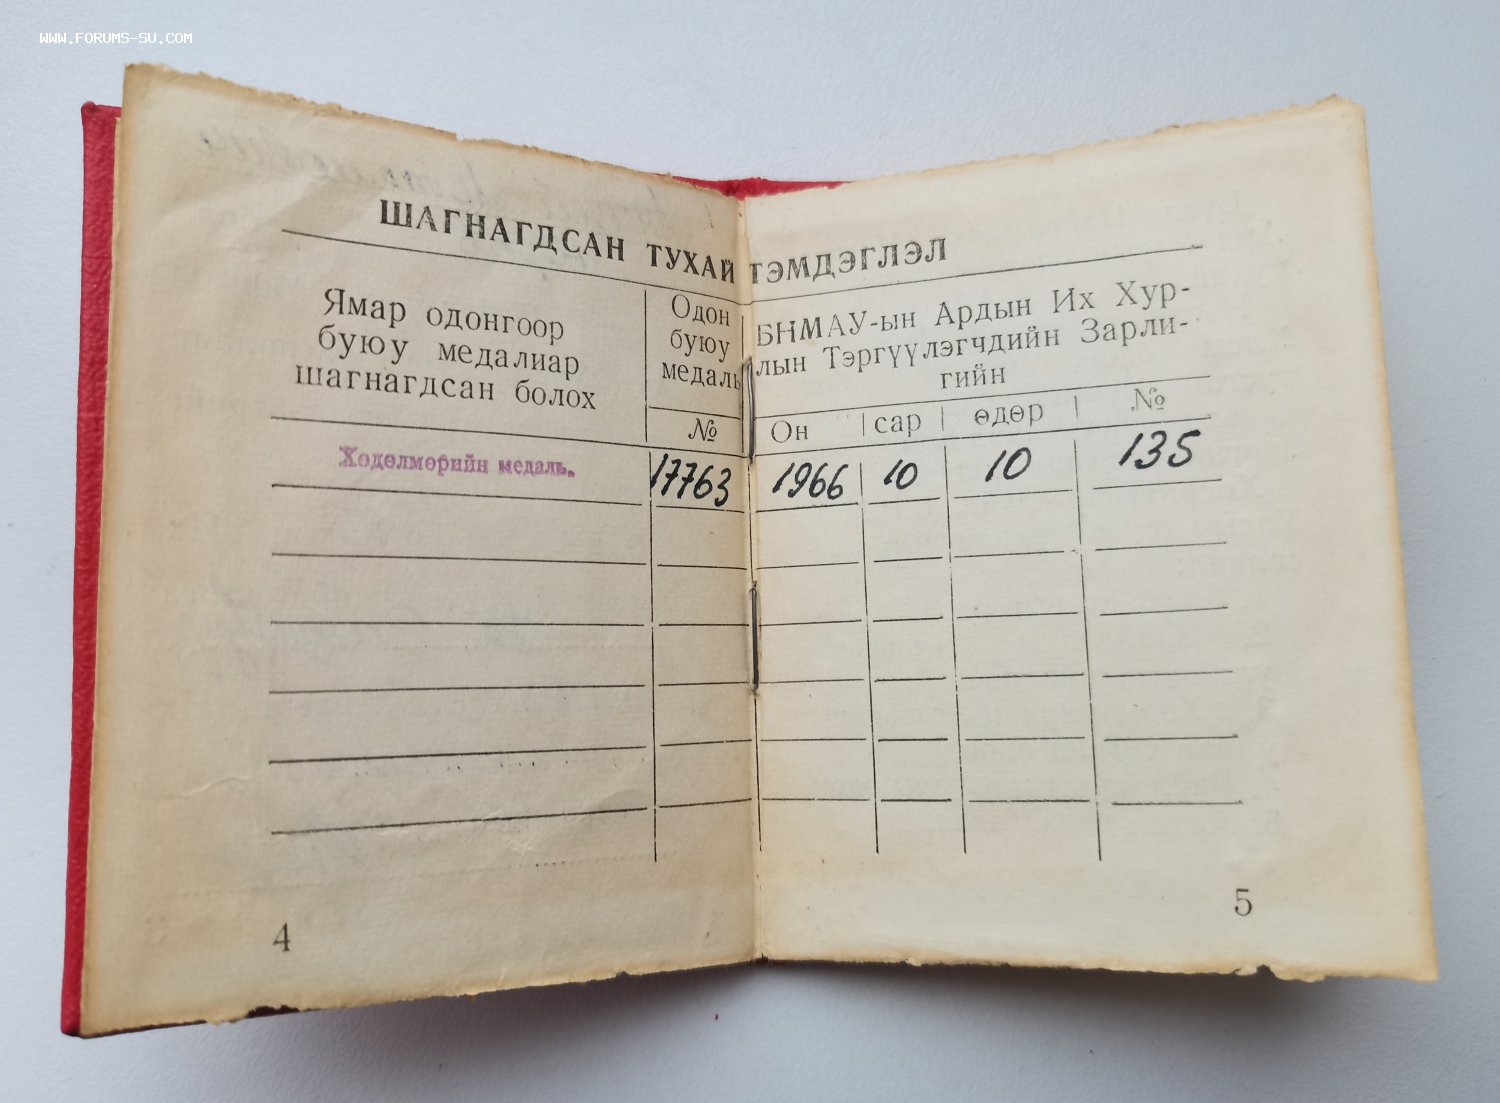 WWW.FORUMS-SU.COM
ШАГНАГДСАН ТУХАЙ ТЭМДЭГЛЭЛ
Ямар одонгоор
буюу медалиар
шагнагдсан болох
Одон
буюу
медаль
№
БНМАУ-ын Ардын Их Хур-
лын Тэргүүлэгчдийн Зарли-
гийн
Он сар өдөр №
Хөдөлмөрийн медаль. 17763 1966 10 10 135
4
5